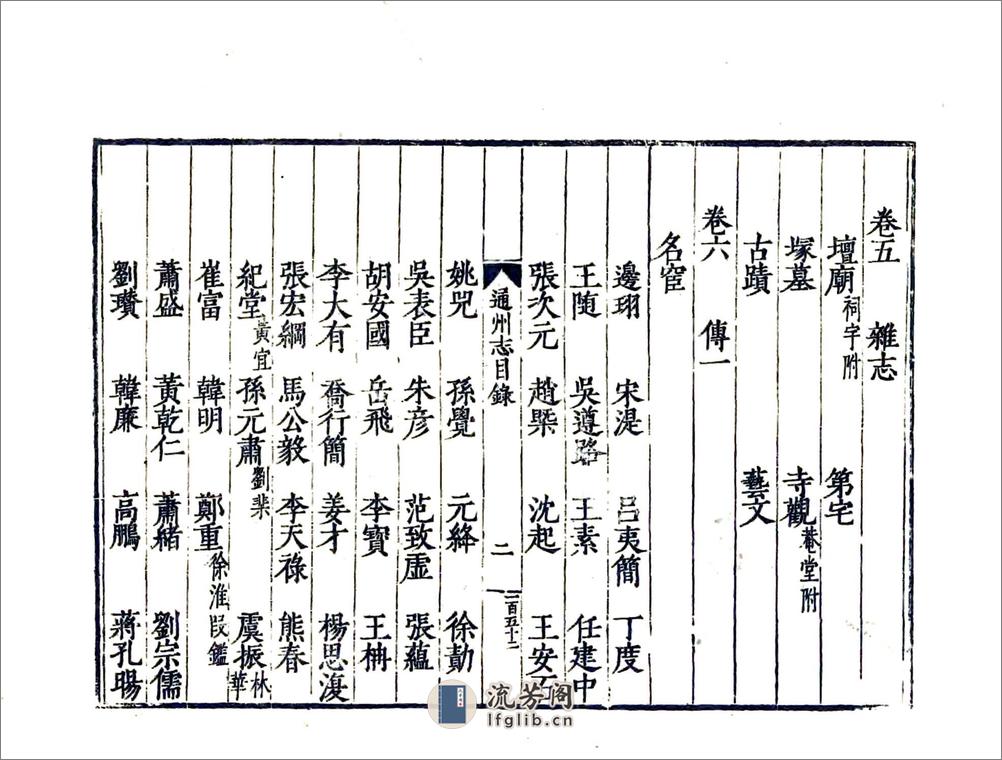 卷五 雜志
壇廟祠宇附 第宅
塚墓 寺觀菴堂附
古蹟 藝文
卷六 傳一
名宦
邊珝 宋湜 呂夷簡 丁度
王随 吳遵路 王素 任建中
張次元 趙㮣 沈起 王安石
通州志目錄 二 二百五十二
姚兕 孫覺 元絳 徐勣
吳表臣 朱彦 范致虛 張蘊
胡安國 岳飛 李寶 王柟
李大有 喬行簡 姜才 楊思復
張宏綱 馬公毅 李天祿 熊春
紀堂黃宜 孫元肅劉棐 虞振林華
崔富 韓明 鄭重徐淮段鑑
蕭盛 黃乾仁 蕭緒 劉宗儒
劉瓚 韓廉 高鵬 蔣孔暘
流芳阁
lfglib.cn